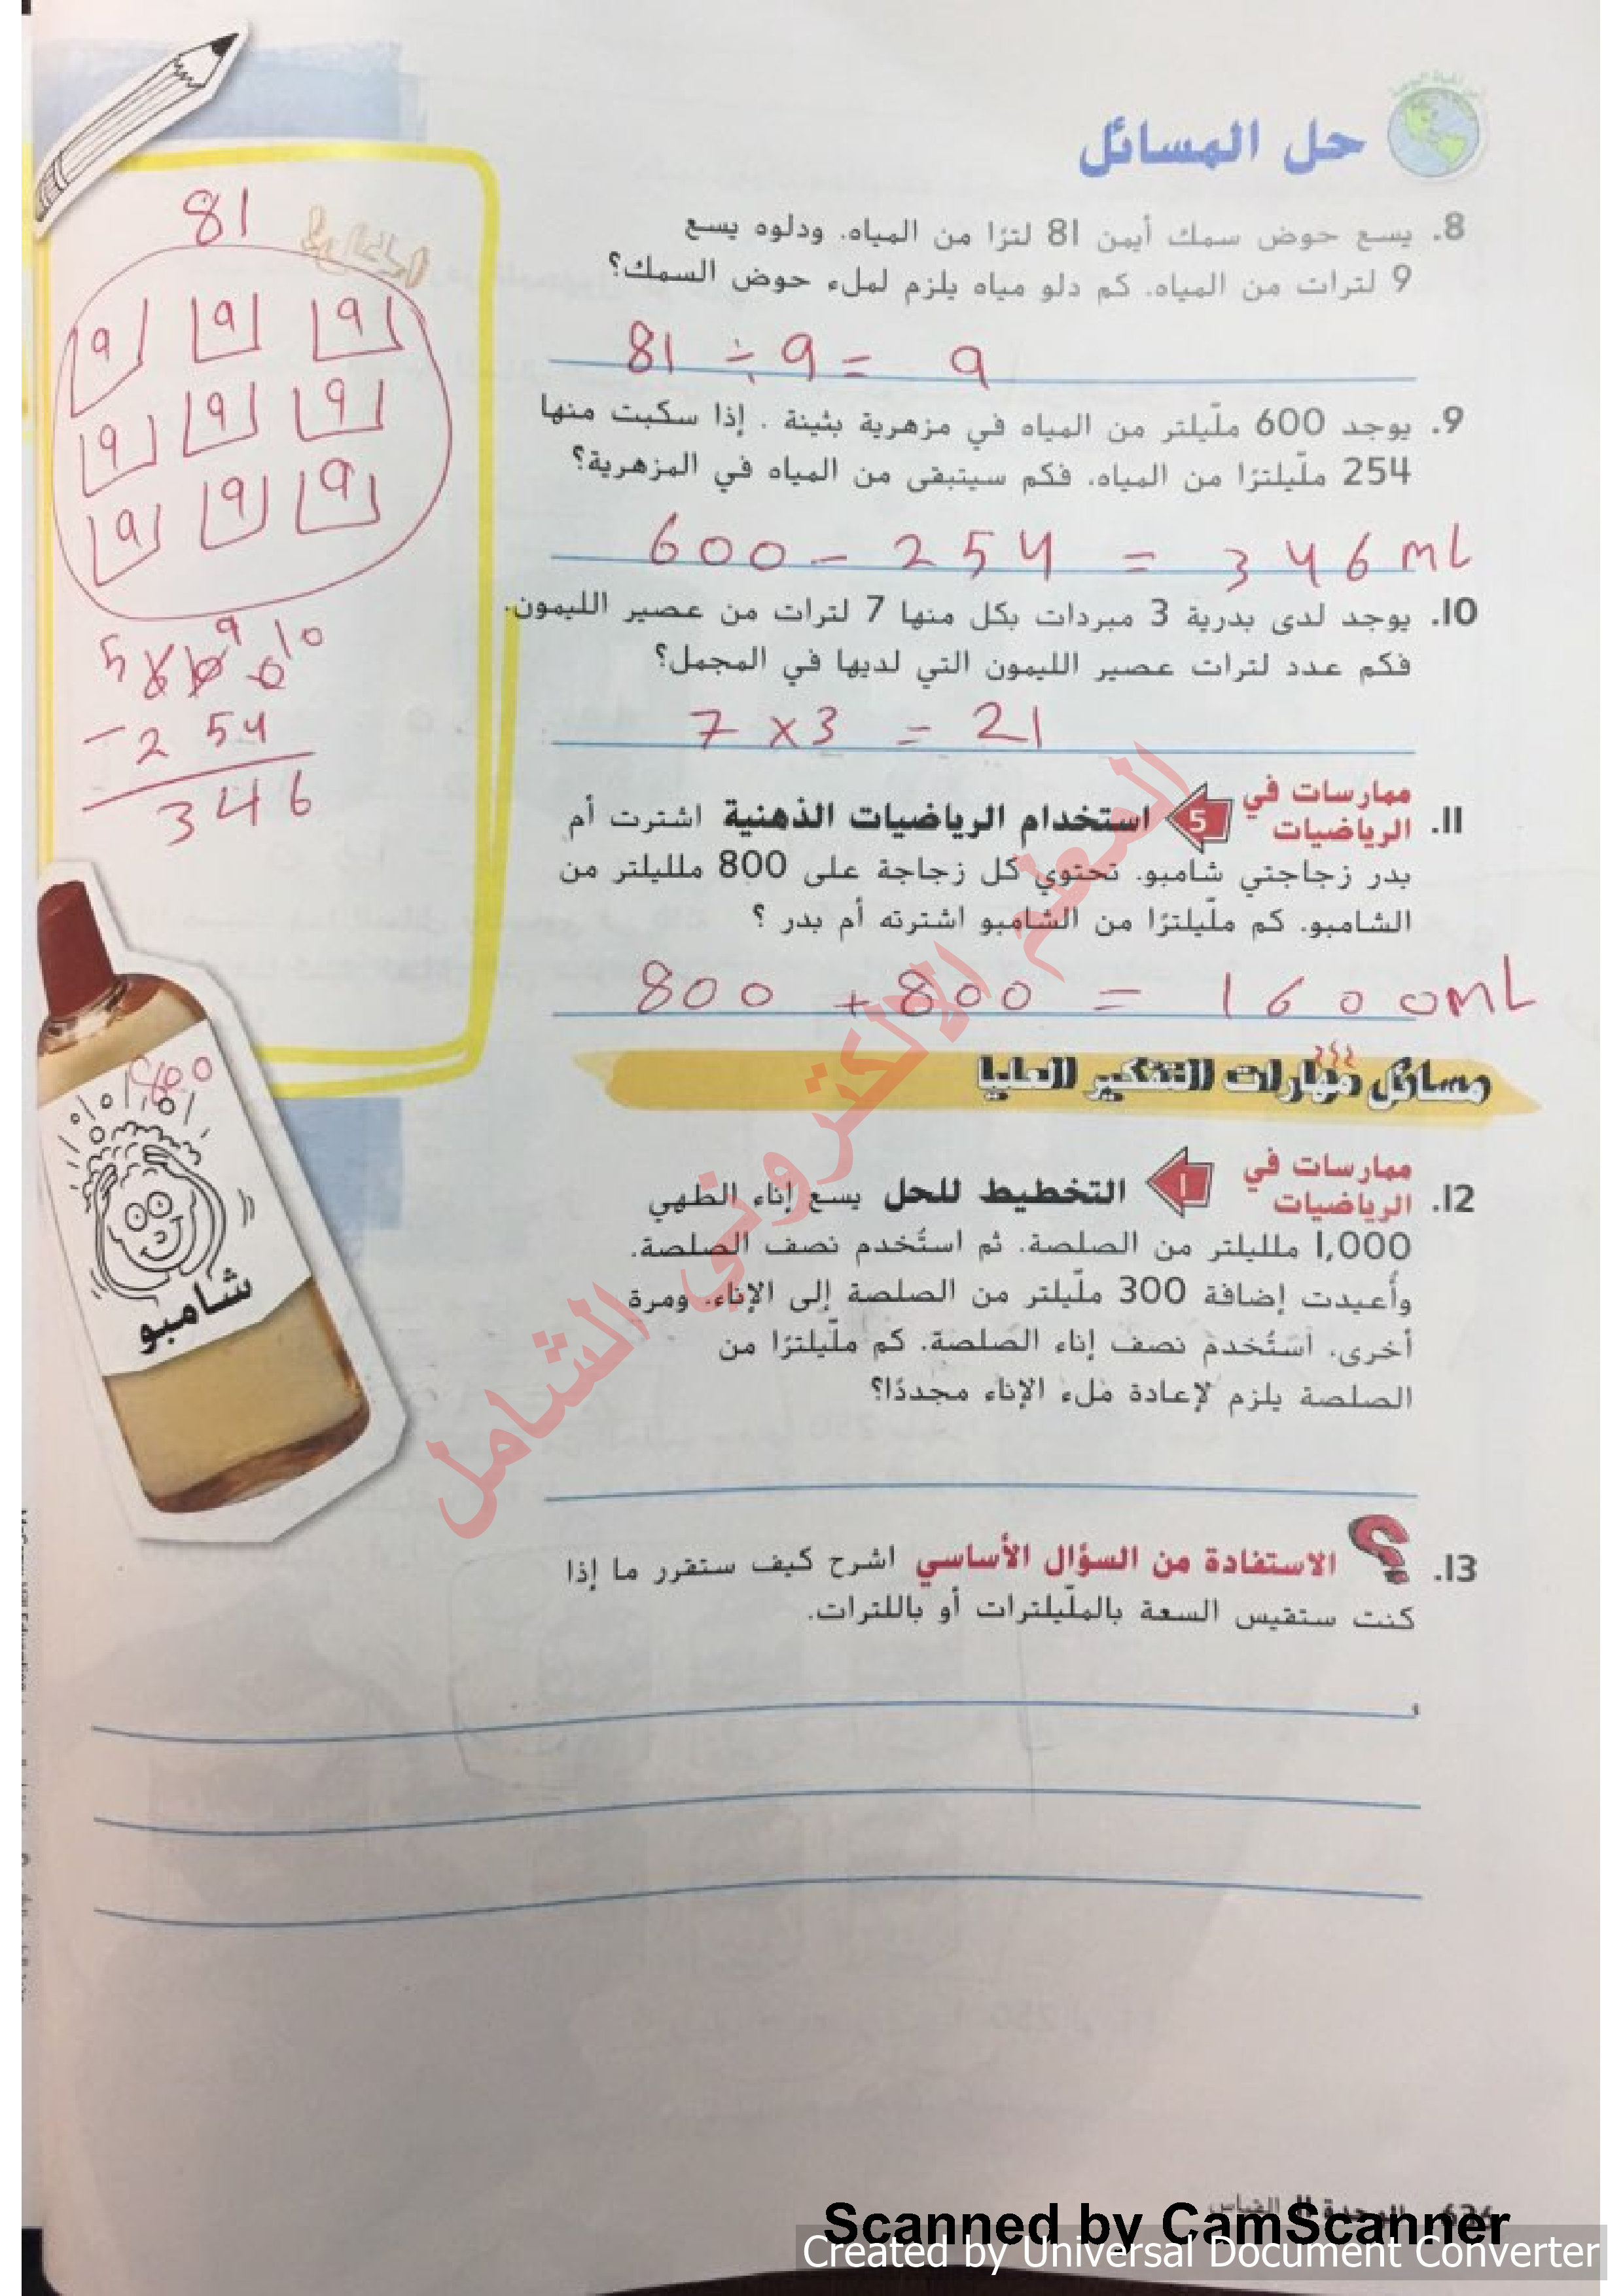 حل المسائل
8. يسع حوض سمك أيمن 81 لترًا من المياه. ودلوه يسع
9 لترات من المياه. كم دلو مياه يلزم لملء حوض السمك؟
81 ÷ 9 = 9
9. يوجد 600 ملّيلتر من المياه في مزهرية بثينة . إذا سكبت منها
254 ملّيلترًا من المياه، فكم سيتبقى من المياه في المزهرية؟
600 - 254 = 346 mL
10. يوجد لدى بدرية 3 مبردات بكل منها 7 لترات من عصير الليمون.
فكم عدد لترات عصير الليمون التي لديها في المجمل؟
7 × 3 = 21
11. ممارسات في الرياضيات 5 استخدام الرياضيات الذهنية اشترت أم
بدر زجاجتي شامبو. تحتوي كل زجاجة على 800 ملليلتر من
الشامبو. كم ملّيلترًا من الشامبو اشترته أم بدر ؟
800 + 800 = 1600 mL
مسائل مهارات التفكير العليا
12. ممارسات في الرياضيات 1 التخطيط للحل يسع إناء الطهي
1,000 ملليلتر من الصلصة. ثم استُخدم نصف الصلصة.
وأُعيدت إضافة 300 ملّيلتر من الصلصة إلى الإناء. ومرة
أخرى، استُخدم نصف إناء الصلصة. كم ملّيلترًا من
الصلصة يلزم لإعادة ملء الإناء مجددًا؟
13. الاستفادة من السؤال الأساسي اشرح كيف ستقرر ما إذا
كنت ستقيس السعة بالملّيلترات أو باللترات.
81
9 9 9
9 9 9
9 9 9
5 9 10
6 0 0
- 2 5 4
3 4 6
800
شامبو
المعلم الالكتروني الشامل
القياس
Scanned by CamScanner
Created by Universal Document Converter